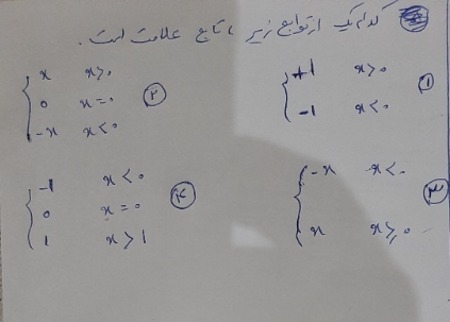 کدام یک از توابع زیر، تابع علامت است.
① { +1 x>0
-1 x<0
② { x x>0
0 x=0
-x x<0
③ { -x x<0
x x≥0
④ { -1 x<0
0 x=0
1 x>1